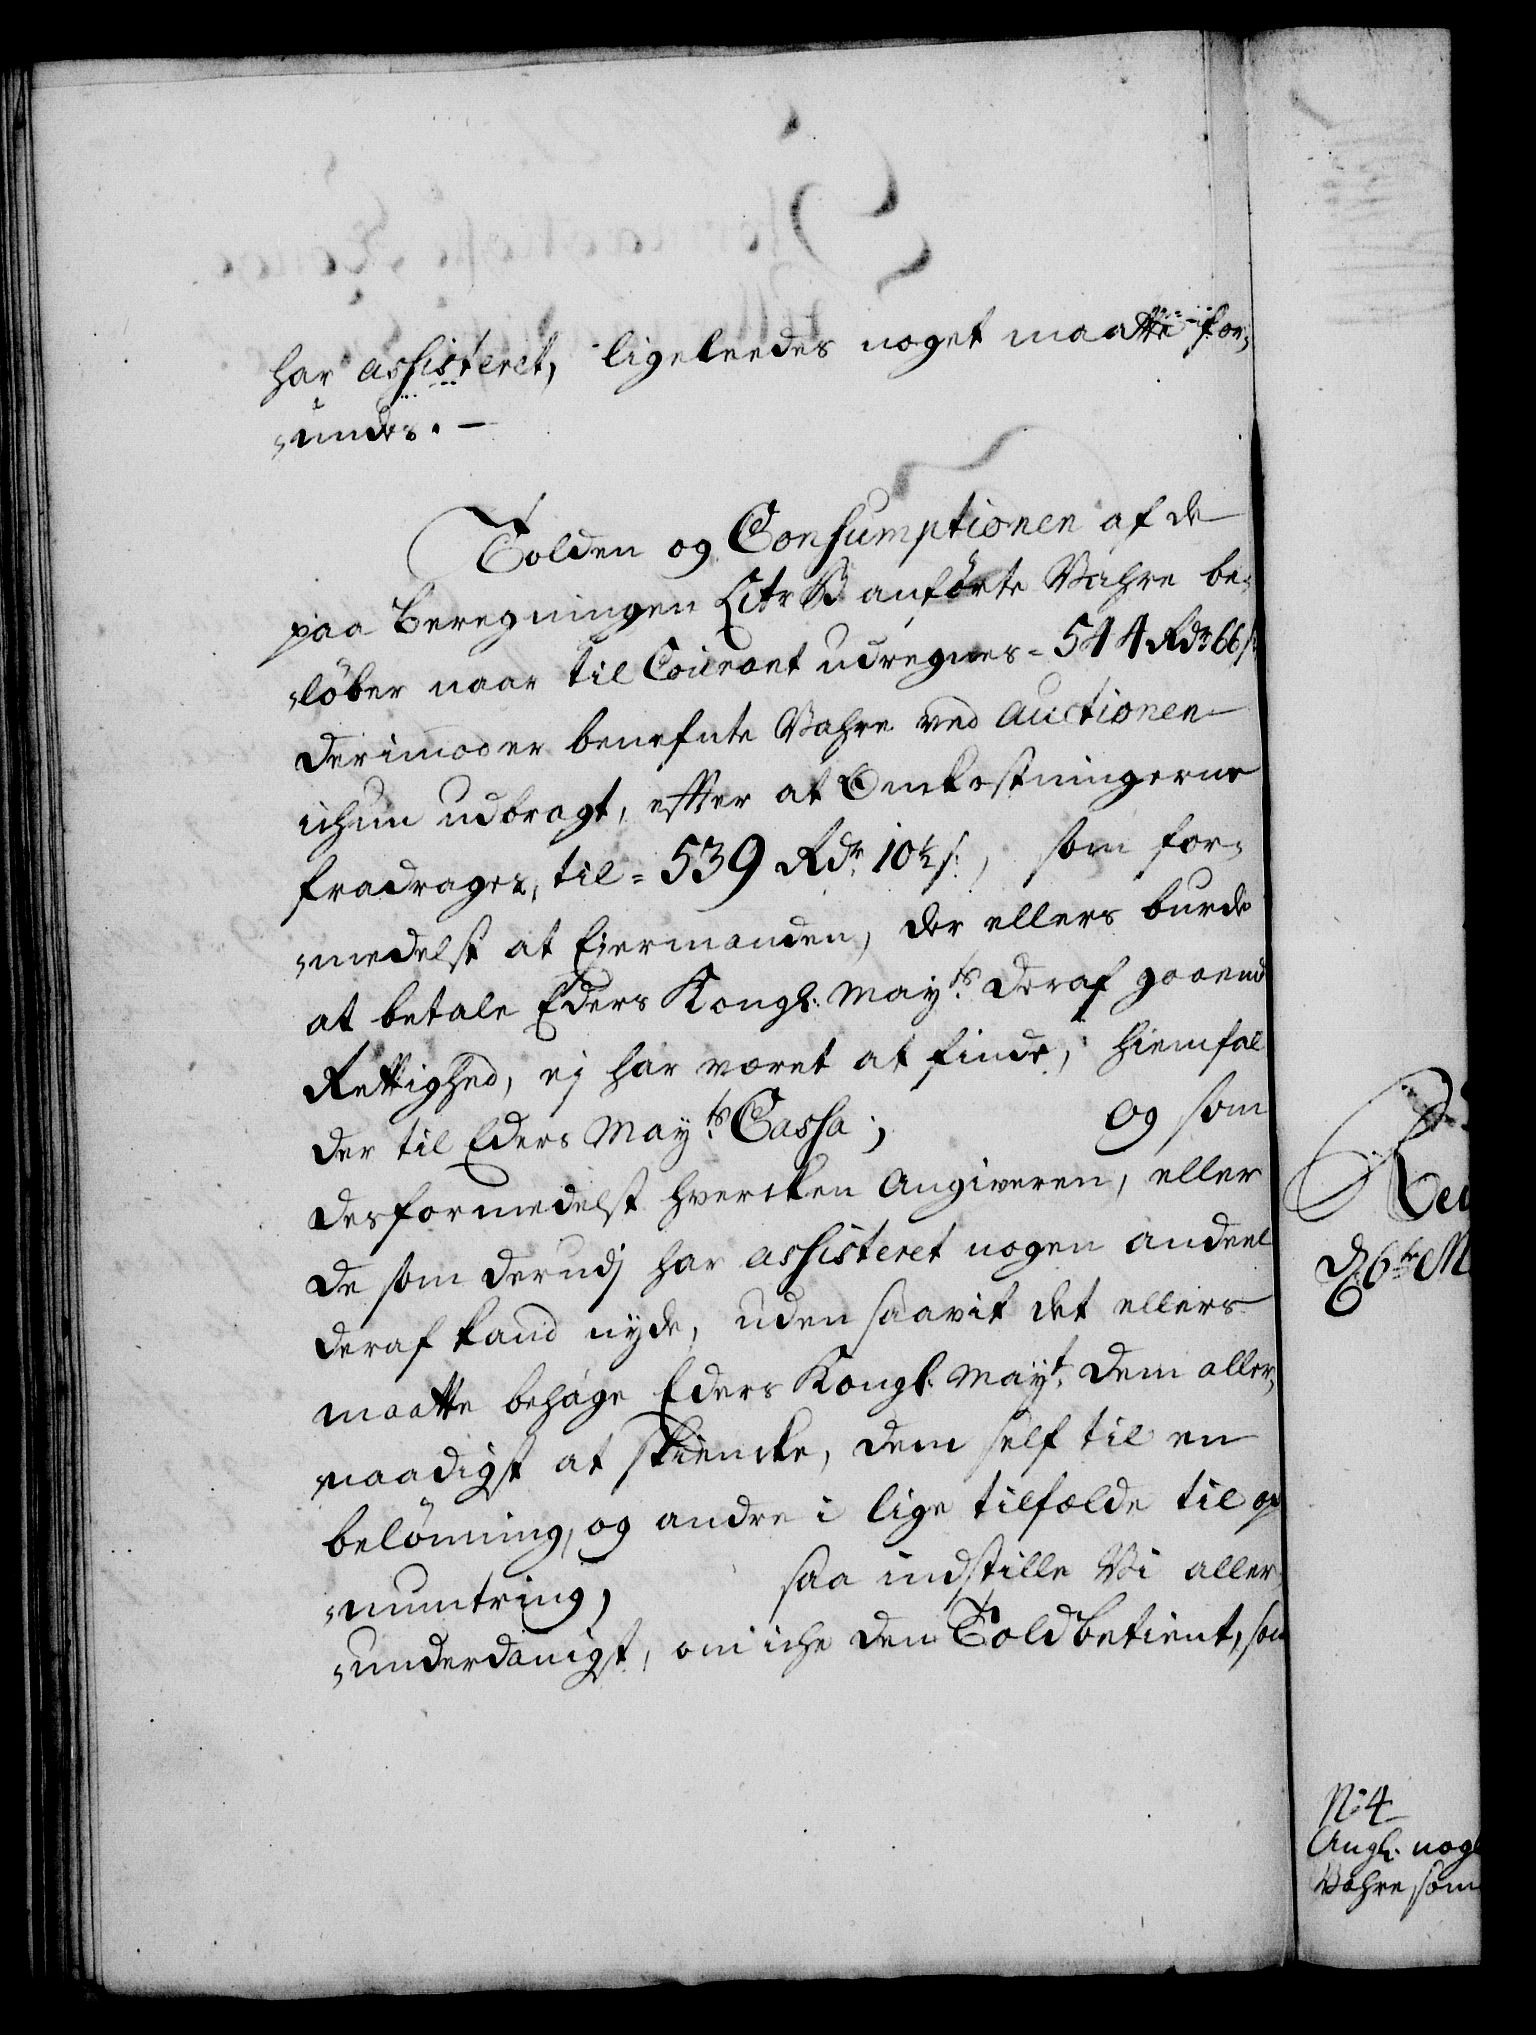 har assisteret, ligeleedes noget maatte for„
„undes. —
Tolden og Consumptionen af de
paa Beregningen Litr B anførte Vahre be„
„løber naar til Courant udregnes = 544 Rdr 66 s:
derimod er benefnte Vahre ved Auctionen
ichun udbragt, effter at Omkostningerne
fradrages, til = 539 Rdr. 10½ s:, som for„
„medelst at Eiermanden, der ellers burde
at betale Eders Kongl: Mayts: deraf gaaende
Rettighed, ej har været at finde, hiemfal
der til Eders Mayts: Cassa; og som
desformedelst hvercken Angiveren, eller
de som derudj har assisteret nogen andeel
deraf kand nyde, uden saavit det ellers
maatte behage Eders Kongl: Mayt: dem aller„
„naadigst at skiencke, dem self til en
belønning, og andre i lige tilfælde til op
„muntring, saa indstille Vi aller
„underdanigst, om iche den Toldbetient, som
d: 6te M
No: 4
Angl: nogl
Vahre som